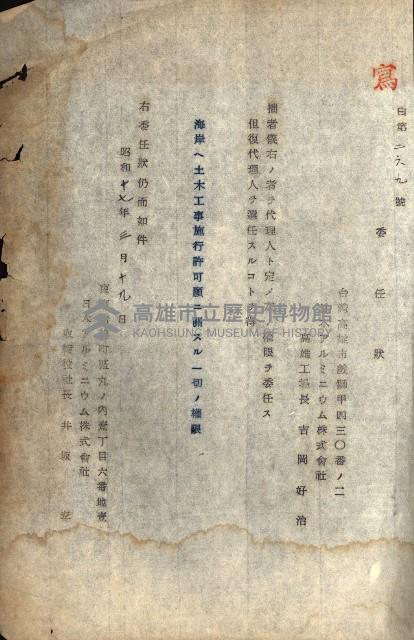 寫
白第二六九號
委任狀
台灣高雄市戲獅甲四三〇番ノ二
アルミニウム株式會社
高雄工場長 吉岡好治
拙者儀右ノ者ヲ代理人ト定メ 權限ヲ委任ス
但復代理人ヲ選任スルコト
海岸ヘ土木工事施行許可願ニ關スル一切ノ權限
右委任狀仍而如件
昭和十七年三月十九日
町區丸ノ内壹丁目六番地壹
ルミニウム株式會社
取締役社長 井坂孝
高雄市立歷史博物館
KAOHSIUNG MUSEUM OF HISTORY